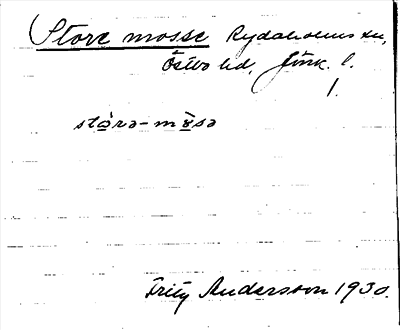 Store mosse Rydaholms sn,
Östbo hd, Jönk. l.
1.
stòrə-mòsə
Fritz Andersson 1930.